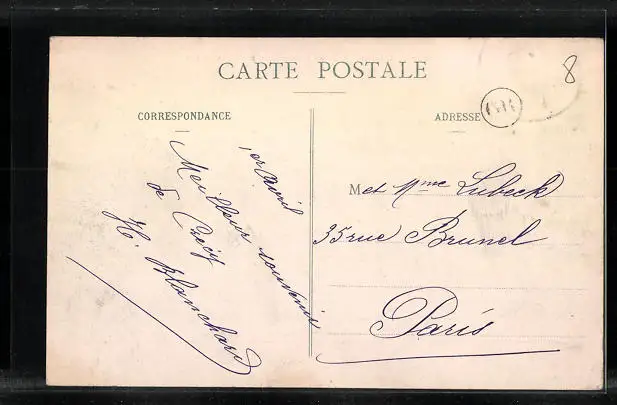 CARTE POSTALE
8
CORRESPONDANCE
ADRESSE
1er Avril
Meilleur souvenir
de Crécy
H. Blanchard
M et Mme Lubeck
35 rue Brunel
Paris